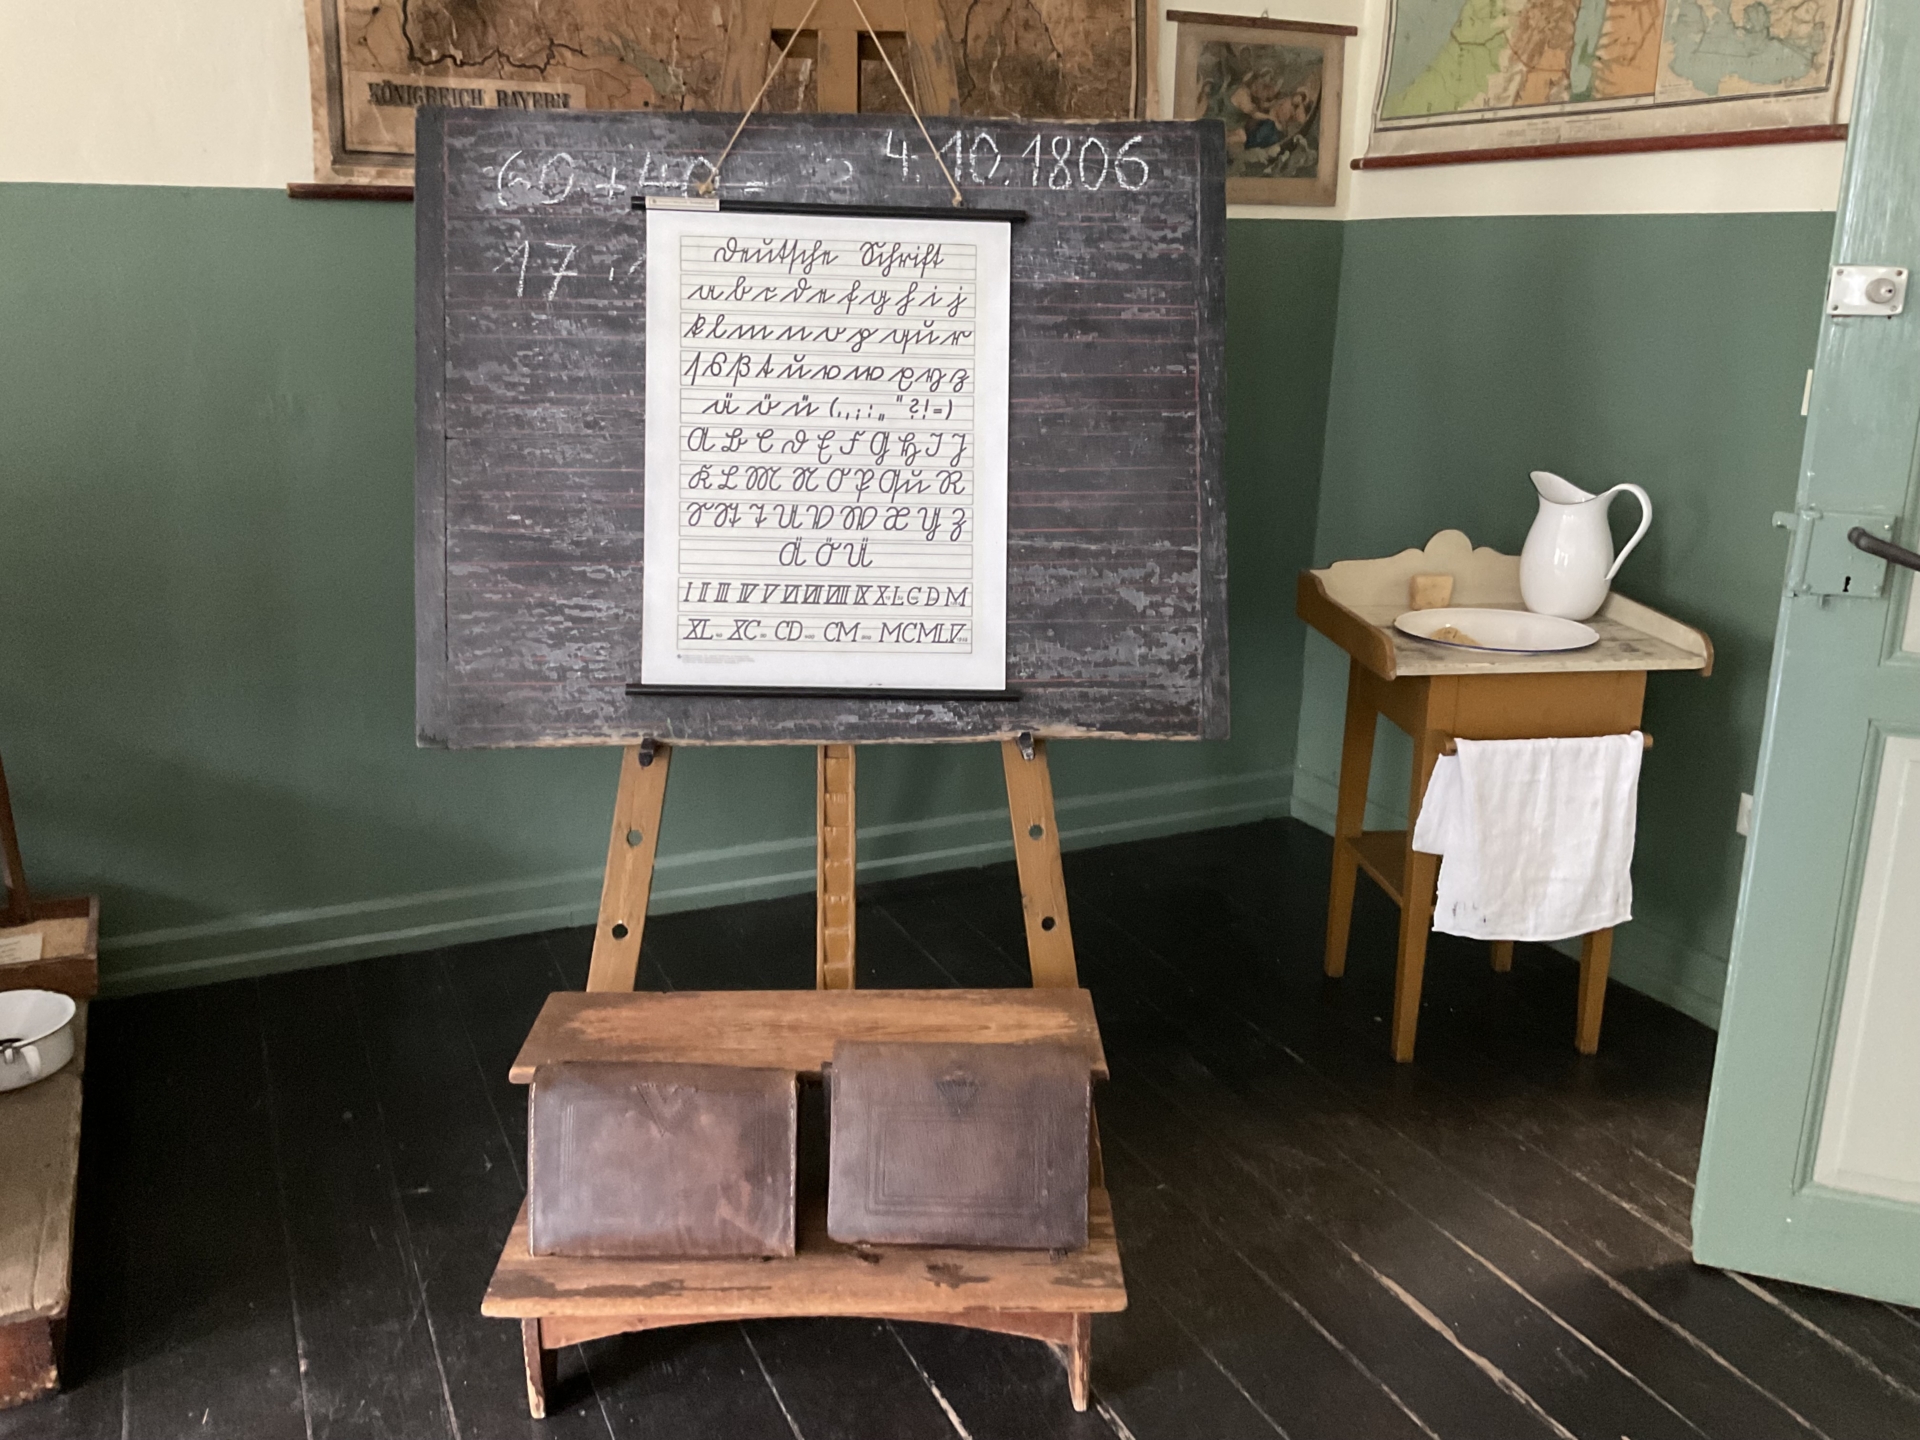 KÖNIGREICH BAYERN
60 + 40 =
4.10.1806
17
Deutsche Schrift
a b c d e f g h i j
k l m n o p qu r
ſ s ß t u v w x y z
ä ö ü (.,;:„ “?!=)
A B C D E F G H I J
K L M N O P Qu R
S St T U V W X Y Z
Ä Ö Ü
I II III IV V VI VII VIII IX X L C D M
XL XC CD CM MCMLV